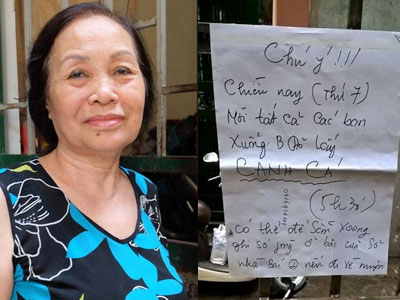 Chú ý!!!
Chiều nay (Thứ 7)
Mời tất cả các bạn
Xuống B Đỗ lấy
CANH CÁ
(5h30)
Có thể để sẵn xoong
ghi số ở bắc cửa số
nhà Bà nếu đi về muộn